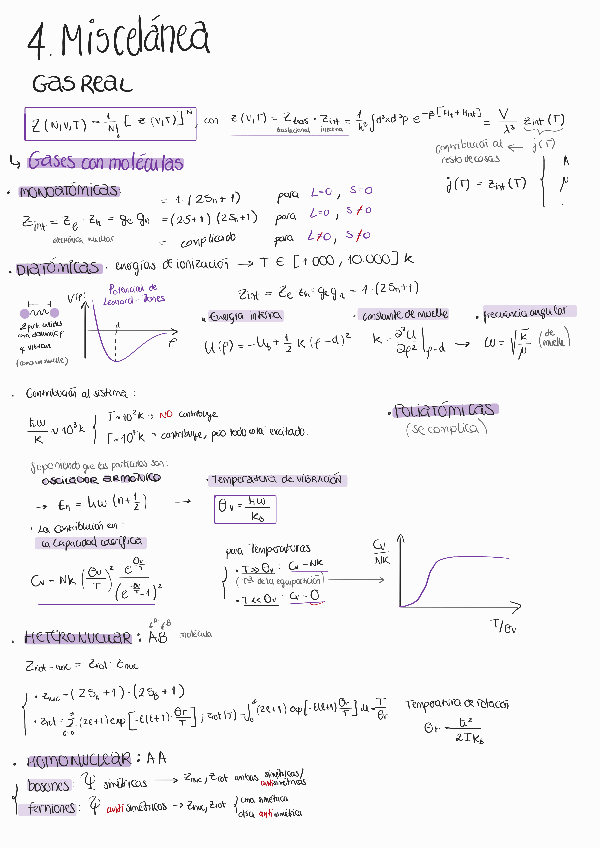 4. Miscelánea
GAS REAL
Z(N,V,T) = 1/N! [z(V,T)]^N con z(V,T) = Z_tras · Z_int = 1/h³ ∫d³x d³p e^{-β[H_t + H_int]} = V/λ³ z_int(T)
traslacional interna
contribución al resto de cosas ← j(T)
j(T) = z_int(T)
↳ Gases con moléculas
· MONOATÓMICAS
Z_int = Z_e · Z_n = g_e g_n
electrónica nuclear
= 1·(2S_n+1) para L=0, S=0
= (2S+1)(2S_n+1) para L=0, S≠0
= complicado para L≠0, S≠0
· DIATÓMICAS · energías de ionización → T ∈ [1000, 10.000] K
2 partículas
Potencial de
Lennard-Jones
Z_int = Z_e Z_n = g_e g_n = 1·(2S_n+1)
· Energía interna
U(ρ) = -U_0 + 1/2 K(ρ-d)²
· constante de muelle
K = ∂²U/∂ρ² |_{ρ=d} →
· frecuencia angular
ω = √(K/μ) (de muelle)
· Contribución al sistema:
ħω/K ∼ 10³K { T∼10²K → NO contribuye
T∼10⁴K → contribuye, pero todo está excitado.
· POLIATÓMICAS
(se complica)
Suponiendo que las partículas son:
OSCILADOR ARMÓNICO
→ E_n = ħω(n+1/2) →
· Temperatura de vibración
θ_v = ħω/k_b
· La contribución en:
La capacidad calorífica
C_v = NK (θ_v/T)² e^{θ_v/T} / (e^{θ_v/T} - 1)²
para temperaturas
· T≫θ_v : C_v = NK
de la equipartición
· T≪θ_v : C_v = 0
C_v/NK
T/θ_v
· HETERONUCLEAR: AB molécula
Z_rot-nuc = Z_rot · Z_nuc
· Z_nuc = (2S_A+1)·(2S_B+1)
· Z_rot = Σ_{ℓ=0}^∞ (2ℓ+1) exp[-ℓ(ℓ+1)·θ_r/T] ; Z_rot(T) = ∫_0^∞ (2ℓ+1) exp[-ℓ(ℓ+1)θ_r/T] dℓ = T/θ_r
Temperatura de rotación
θ_r = ħ²/2Ik_b
· HOMONUCLEAR: AA
bosones: Ψ simétricas → Z_nuc, Z_rot ambas simétricas/antisimétricas
fermiones: Ψ antisimétricas → Z_nuc, Z_rot { una simétrica
otra antisimétrica